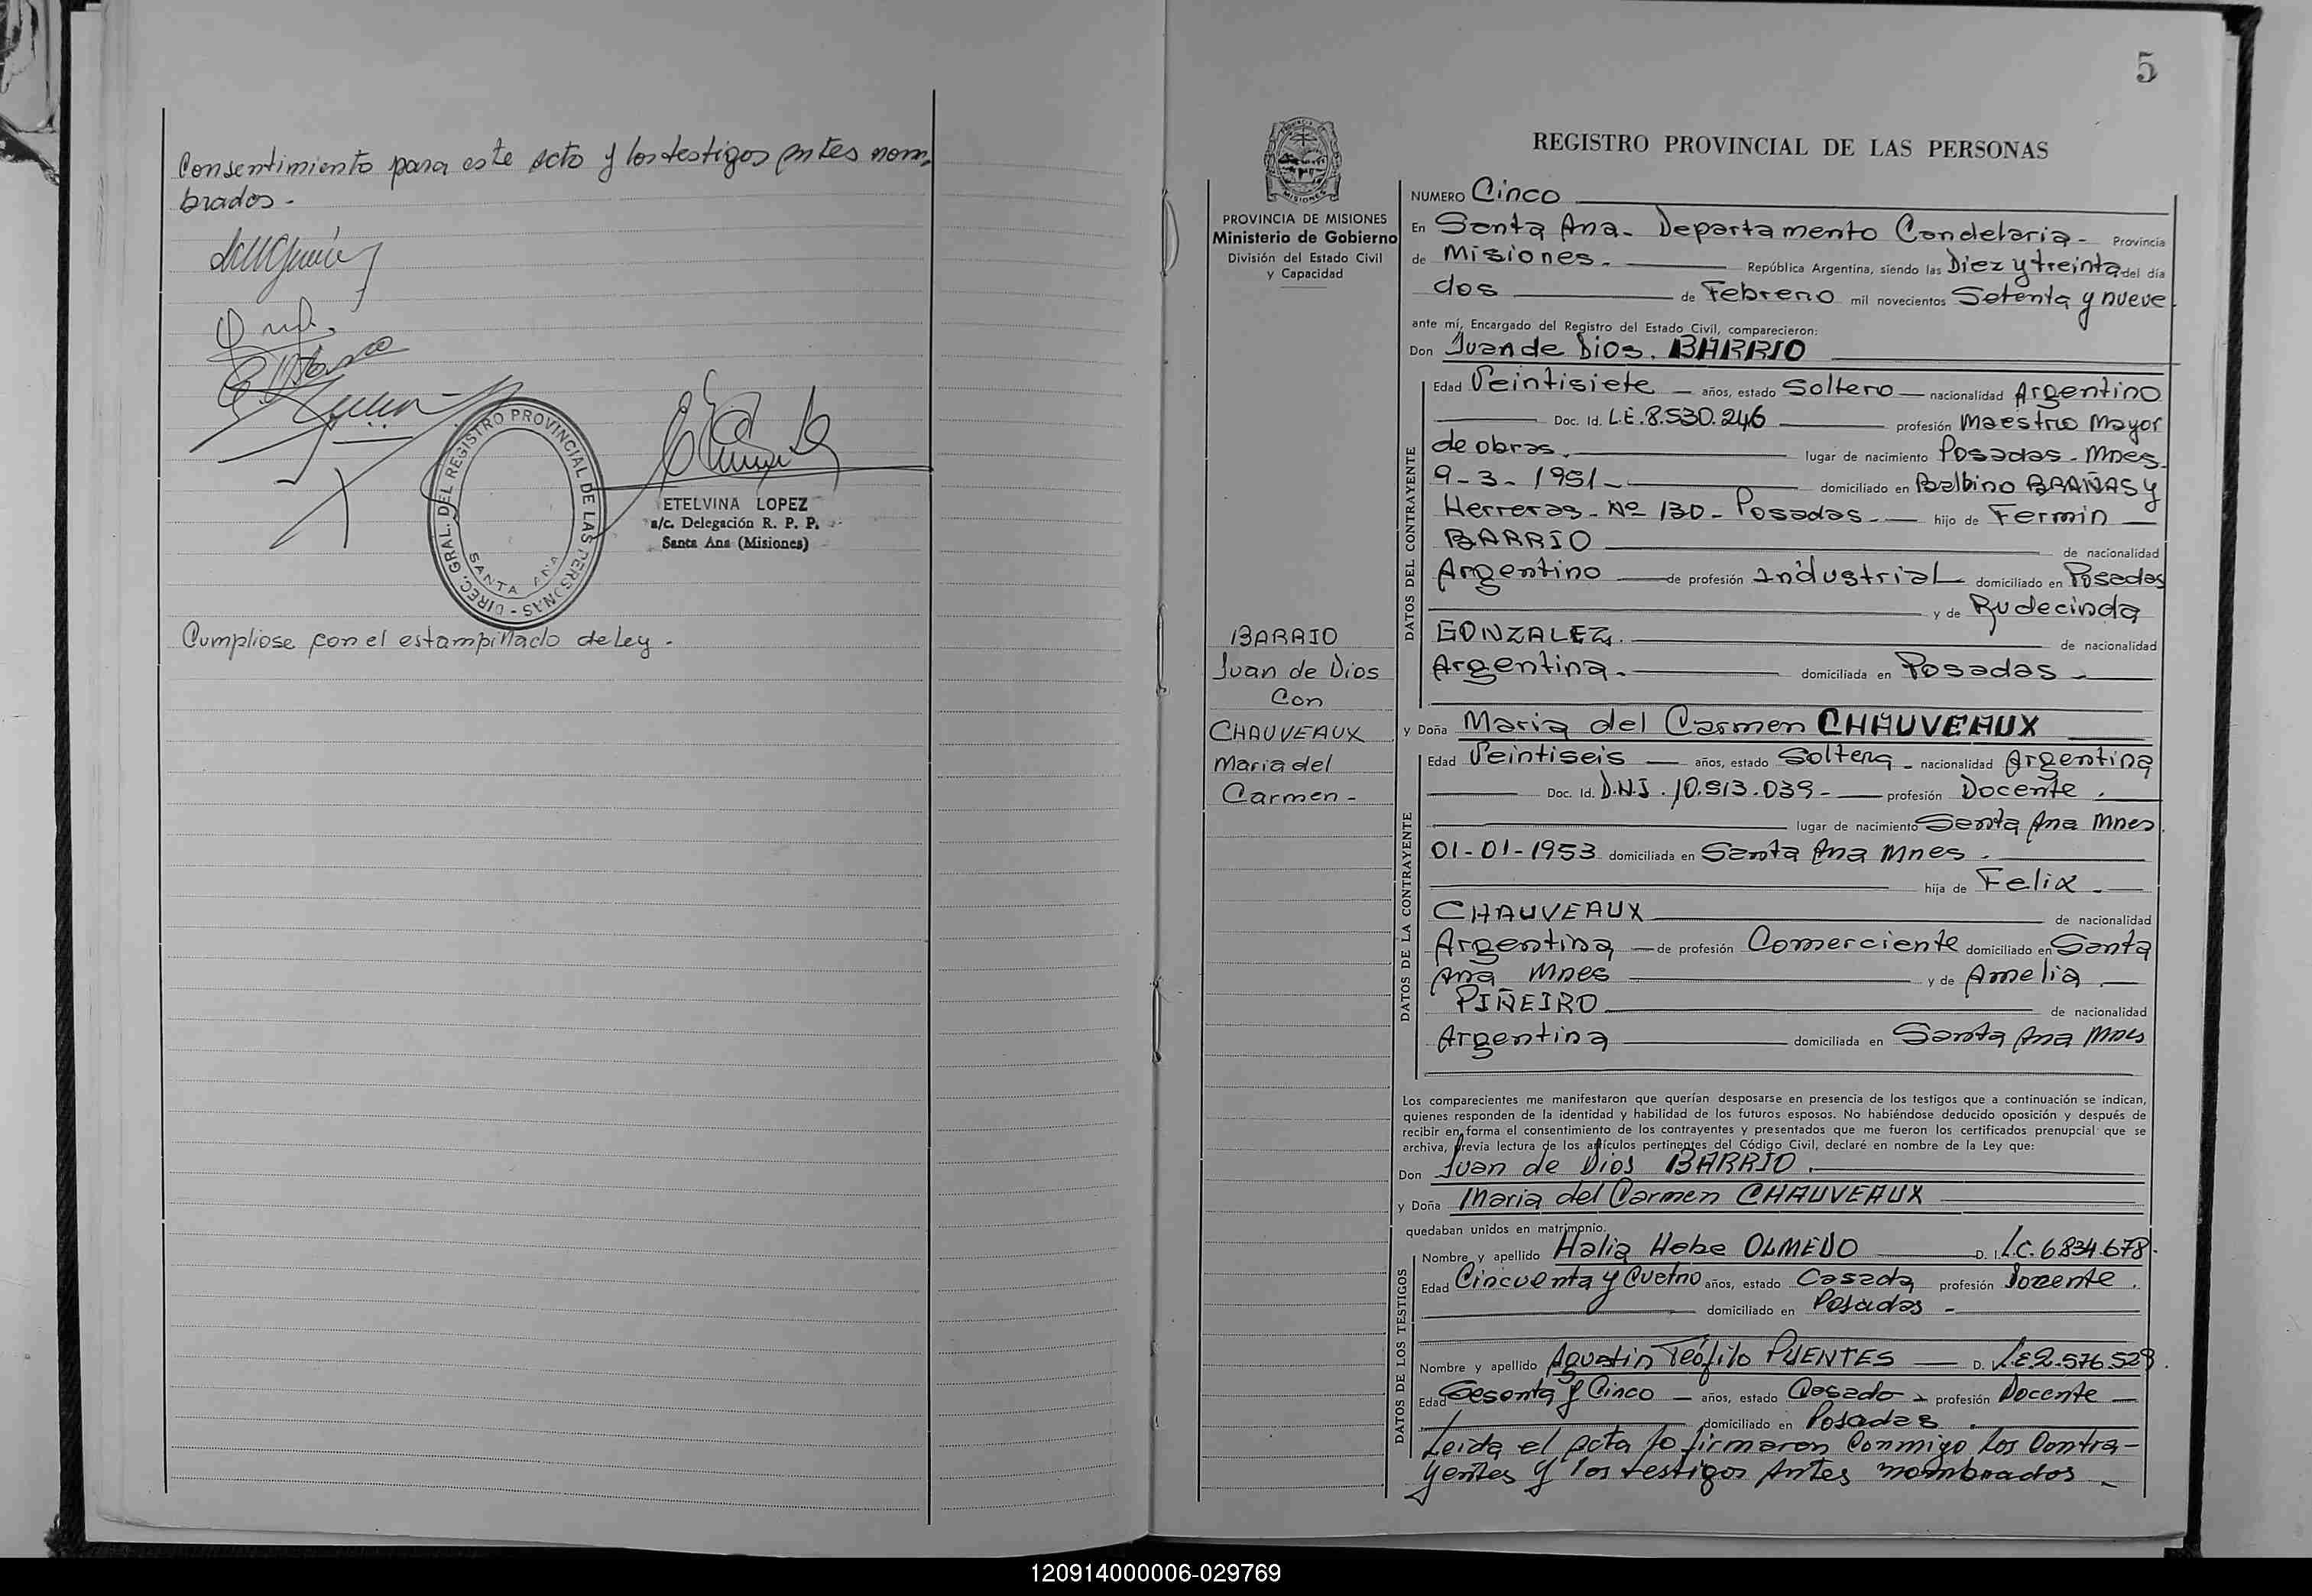 Consentimiento para este acto y los testigos antes nom-
brados -
DIREC. GRAL. DEL REGISTRO PROVINCIAL DE LAS PERSONAS -
SANTA ANA
ETELVINA LOPEZ
a/c. Delegación R. P. P.
Santa Ana (Misiones)
Cumpliose con el estampillado de Ley -
5
PROVINCIA DE MISIONES
Ministerio de Gobierno
División del Estado Civil
y Capacidad
BARRIO
Juan de Dios
Con
CHAUVEAUX
Maria del
Carmen -
REGISTRO PROVINCIAL DE LAS PERSONAS
NUMERO Cinco
En Santa Ana - Departamento Candelaria - Provincia
de Misiones - República Argentina, siendo las Diez y treinta del día
dos de Febrero mil novecientos Setenta y nueve
ante mí, Encargado del Registro del Estado Civil, comparecieron:
Don Juan de Dios. BARRIO
DATOS DEL CONTRAYENTE
Edad Veintisiete - años, estado Soltero - nacionalidad Argentino
Doc. Id. L.E. 8.530.246 profesión Maestro Mayor
de obras. lugar de nacimiento Posadas - Mnes.
9-3-1951 - domiciliado en Balbino BRAÑAS y
Herreras - Nº 130 - Posadas - hijo de Fermin
BARRIO de nacionalidad
Argentino de profesión Industrial domiciliado en Posadas
y de Rudecinda
GONZALEZ. de nacionalidad
Argentina - domiciliada en Posadas -
y Doña Maria del Carmen CHAUVEAUX
DATOS DE LA CONTRAYENTE
Edad Veintiseis - años, estado Soltera - nacionalidad Argentina
Doc. Id. D.N.I. 10.513.039 - profesión Docente.
lugar de nacimiento Santa Ana Mnes.
01-01-1953 domiciliada en Santa Ana Mnes.
hija de Felix -
CHAUVEAUX de nacionalidad
Argentina - de profesión Comerciente domiciliado en Santa
Ana Mnes y de Amelia
PIÑEIRO de nacionalidad
Argentina domiciliada en Santa Ana Mnes
Los comparecientes me manifestaron que querían desposarse en presencia de los testigos que a continuación se indican,
quienes responden de la identidad y habilidad de los futuros esposos. No habiéndose deducido oposición y después de
recibir en forma el consentimiento de los contrayentes y presentados que me fueron los certificados prenupcial que se
archiva, previa lectura de los artículos pertinentes del Código Civil, declaré en nombre de la Ley que:
Don Juan de Dios BARRIO.
y Doña Maria del Carmen CHAUVEAUX
quedaban unidos en matrimonio.
DATOS DE LOS TESTIGOS
Nombre y apellido Halia Hebe OLMEDO D. I. L.C. 6834.678.
Edad Cincuenta y Cuatro años, estado Casada profesión Docente.
domiciliado en Posadas -
Nombre y apellido Agustin Teófilo PUENTES - D. L.E 2.576.529.
Edad Sesenta y Cinco - años, estado Casado - profesión Docente -
domiciliado en Posadas.
Leida el acta lo firmaron Conmigo los Contra-
yentes y los testigos Antes nombrados -
120914000006-029769